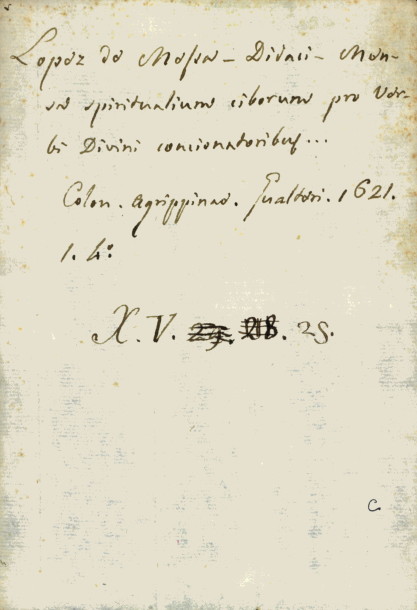 Lopez de Messa - Didaci - Men-
sa spiritualium ciborum pro Ver-
bi Divini concionatoribus...
Colon. Agrippinae. Gualteri. 1621.
1. 4º
X. V. 25.
C